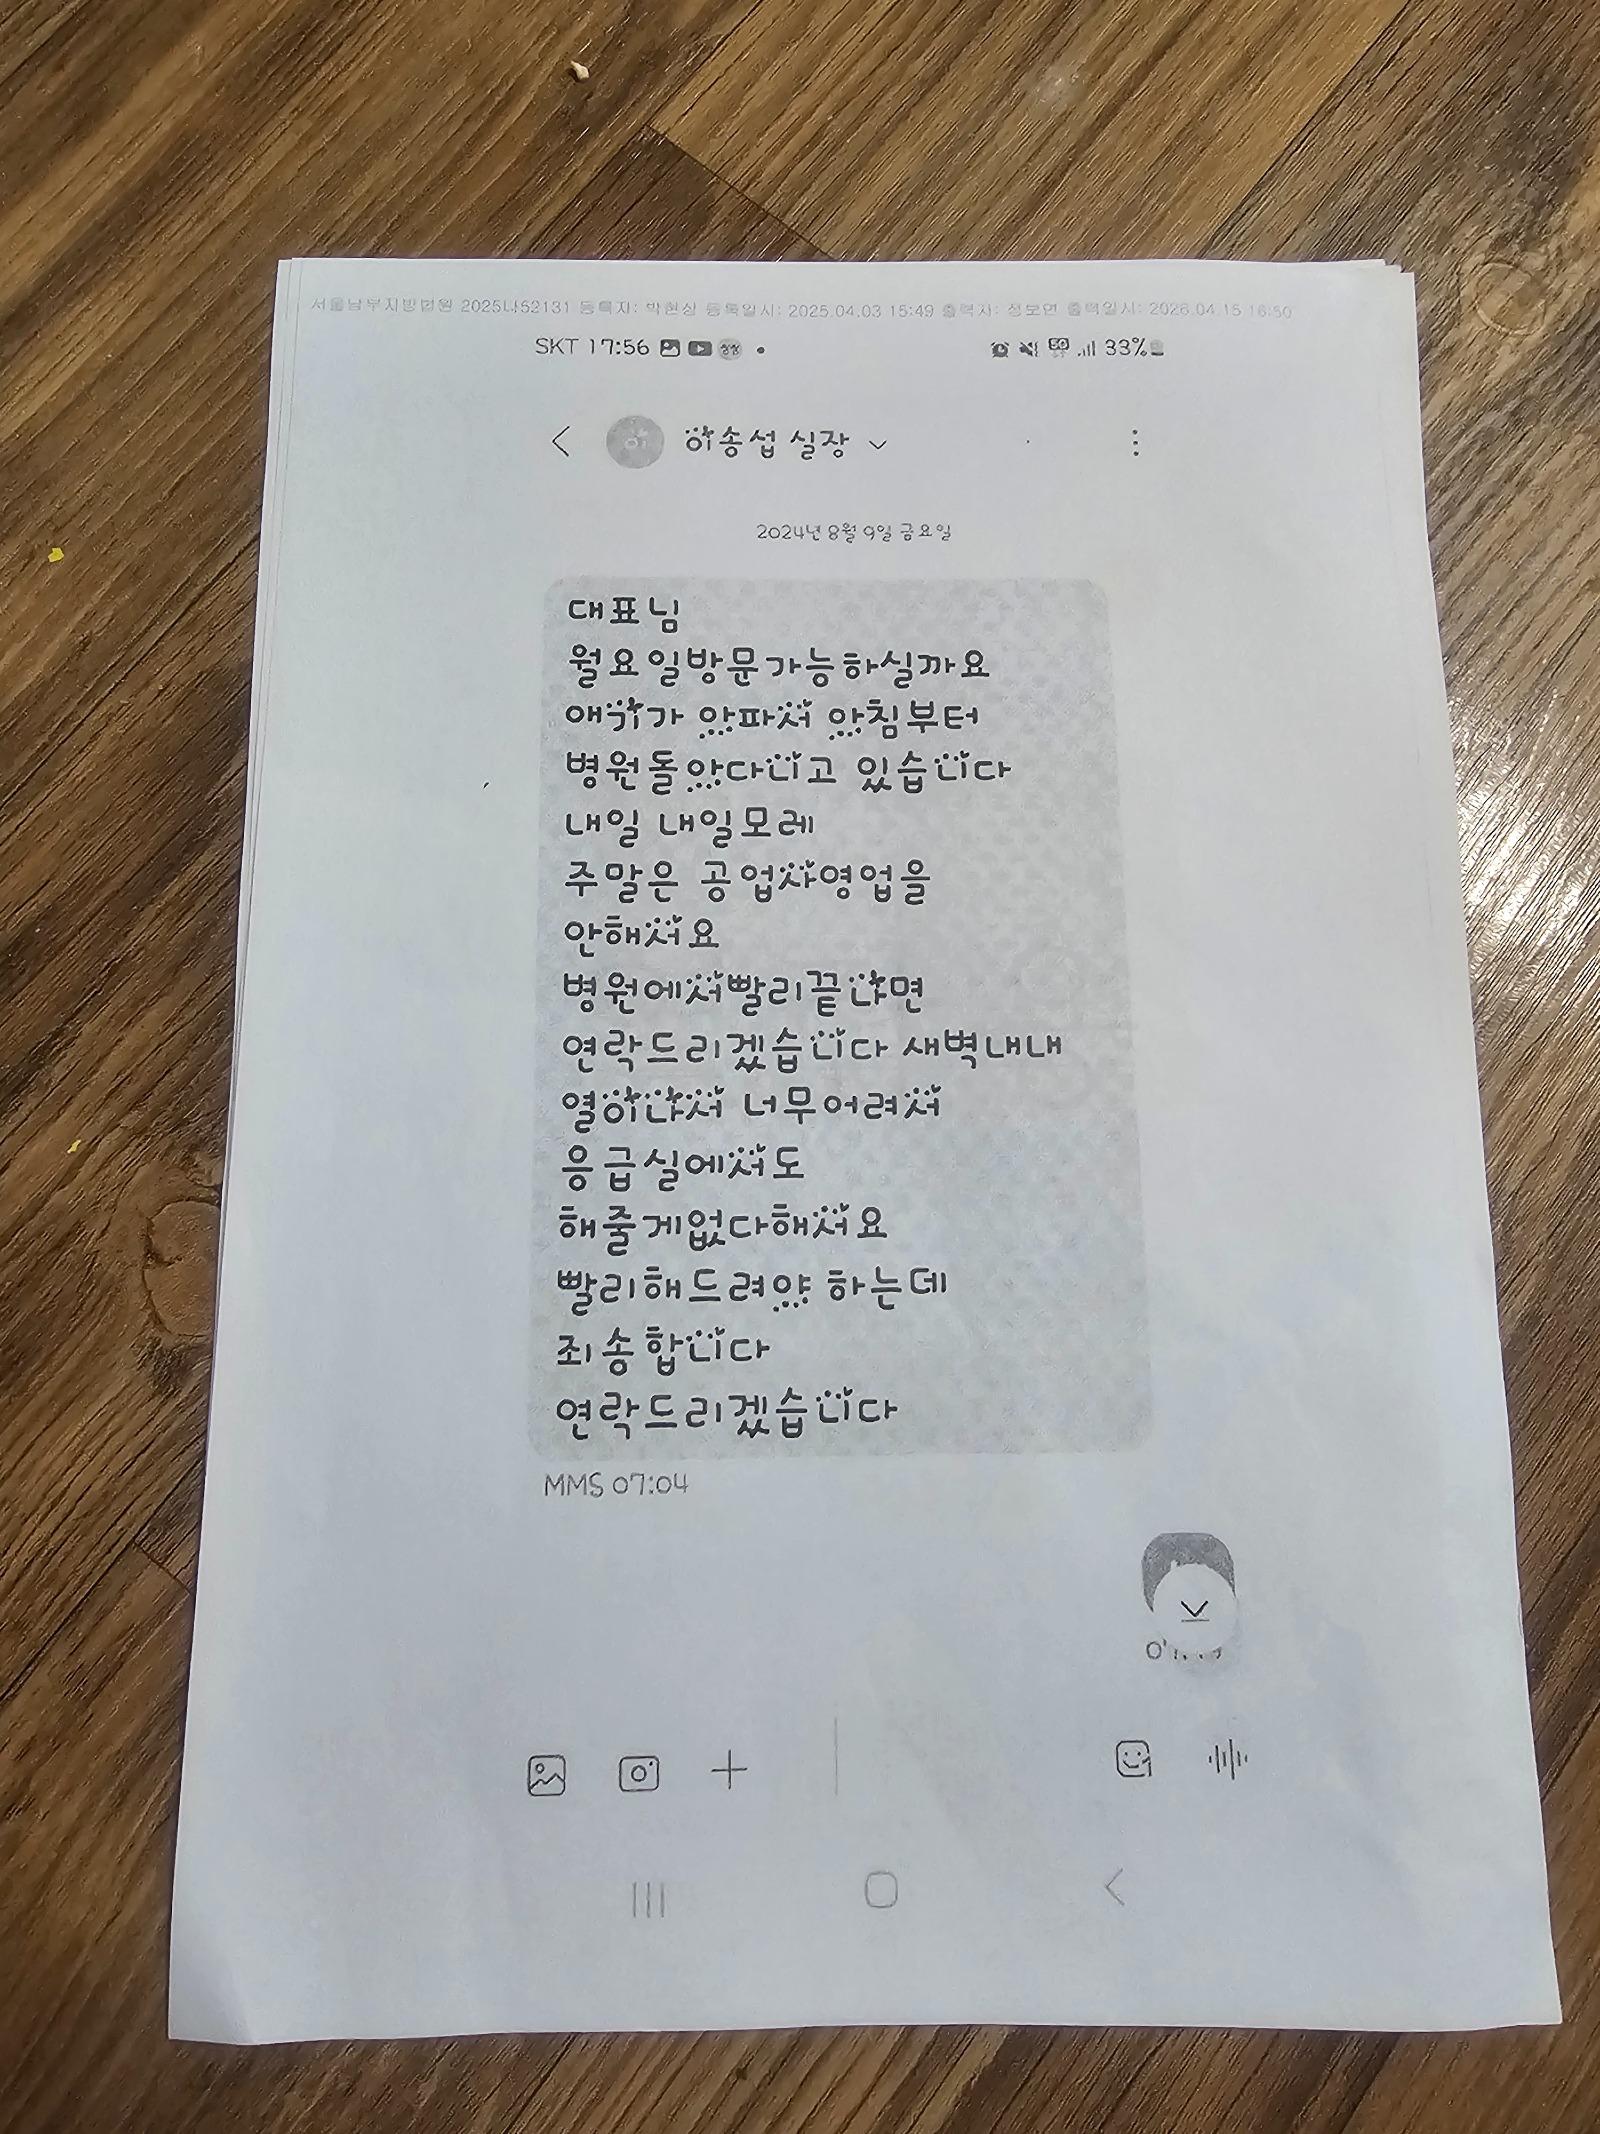 서울남부지방법원 2025나52131 등록자: 박현상 등록일시: 2025.04.03 15:49 출력자: 정보연 출력일시: 2026.04.15 16:50
SKT 17:56 33%
이송섭 실장
2024년 8월 9일 금요일
대표님
월요일방문가능하실까요
애기가 아파서 아침부터
병원돌아다니고 있습니다
내일 내일모레
주말은 공업사영업을
안해서요
병원에서빨리끝나면
연락드리겠습니다 새벽내내
열이나서 너무어려서
응급실에서도
해줄게없다해서요
빨리해드려야 하는데
죄송합니다
연락드리겠습니다
MMS 07:04